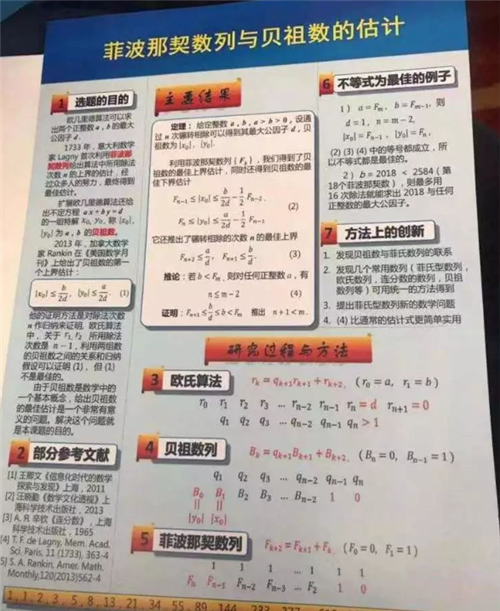 菲波那契数列与贝祖数的估计
1 选题的目的
欧几里德算法可以求
出两个正整数 a, b 的最大
公因子 d。
1733 年，意大利数学
家 Lagny 首次利用菲波那
契数列给出算法中所用除法
次数 n 的上界的估计，经
过众多人的努力，最终得到
最佳估计。
扩展欧几里德算法还给
出不定方程 ax + by = d
的一组特解 x₀, y₀，称 |x₀|,
|y₀| 为 a, b 的贝祖数。
2013 年，加拿大数学
家 Rankin 在《美国数学月
刊》上给出了贝祖数的第一
个上界估计：
|x₀| ≤ b/2d, |y₀| ≤ a/2d (1)
他的证明方法是对除法次数
n 作归纳来证明。欧氏算法
中，关于 r₁, r₂ 所用除法
次数是 n − 1，利用两组数
的贝祖数之间的关系和归纳
假设可以证明 (1)，但 (1)
不是最佳的。
由于贝祖数是数学中的
一个基本概念，给出贝祖数
的最佳估计是一个非常有意
义的问题。解决这个问题就
是本课题的目的。
2 部分参考文献
[1] 王《信息化时代的数学
探索与发现》上海，2011
[2] 汪晓勤《数学文化透视》上
海科学技术出版社，2013
[3] A. Я. 辛钦《连分数》，上海
科学技术出版社，1965
4] T. F. de Lagny, Mem. Acad.
Sci. Paris, 11 (1733), 363-4
5] S. A. Rankin, Amer. Math.
Monthly,120(2013)562-4
主要结果
定理：给定整数 a, b, a > b > 0，设通
过 n 次辗转相除可以得到其最大公因子 d，贝
祖数为 |x₀|, |y₀|.
利用菲波那契数列 {Fₖ}，我们得到了贝
祖数的最佳上界估计，同时还得到贝祖数的最
佳下界估计
Fₙ₋₁ ≤ |x₀| ≤ b/2d − 1/2 Fₙ₋₂,
(2)
Fₙ ≤ |y₀| ≤ a/2d − 1/2 Fₙ₋₁.
它还推出了辗转相除的次数 n 的最佳上界
Fₙ₊₂ ≤ a/d, Fₙ₊₁ ≤ b/d. (3)
推论：若 b < Fₘ，则对任何正整数 a，有
n ≤ m − 2 (4)
证明：Fₙ₊₁ ≤ b/d ≤ b < Fₘ 推出 n + 1 < m.
6 不等式为最佳的例子
1） a = Fₘ, b = Fₘ₋₁，则
d = 1, n = m − 2,
|x₀| = Fₙ₋₁, |y₀| = Fₙ.
(2) (3) (4) 中的等号都成立，所
以不等式都是最佳的。
2） b = 2018 < 2584（第
18个菲波那契数），则最多用
16 次除法就能求出 2018 与任何
正整数的最大公因子。
7 方法上的创新
1. 发现贝祖数与菲氏数列的联系
2. 发现几个常用数列（菲氏型数列，
欧氏数列，连分数的数列，贝祖
数列等）可用统一的方法得到
3. 提出菲氏型数列新的数学问题
4. (4) 比通常的估计式更简单实用
研究过程与方法
3 欧氏算法 rₖ = qₖ₊₁rₖ₊₁ + rₖ₊₂, (r₀ = a, r₁ = b)
r₀ r₁ r₂ r₃ … rₙ₋₂ rₙ₋₁ rₙ = d rₙ₊₁ = 0
q₁ q₂ q₃ … qₙ₋₂ qₙ₋₁ qₙ > 1
4 贝祖数列 Bₖ = qₖ₊₁Bₖ₊₁ + Bₖ₊₂, (Bₙ = 0, Bₙ₋₁ = 1)
q₁ q₂ q₃ … qₙ₋₂ qₙ₋₁ qₙ
B₀ B₁ B₂ B₃ … Bₙ₋₂ 1 0
|| ||
|y₀| |x₀|
5 菲波那契数列 Fₖ₊₂ = Fₖ₊₁ + Fₖ, (F₀ = 0, F₁ = 1)
1 1 1 … 1 1 1
Fₙ Fₙ₋₁ Fₙ₋₂ Fₙ₋₃ … F₂ 1 0
1, 1, 2, 3, 5, 8, 13, 21, 34, 55, 89, 144, 233